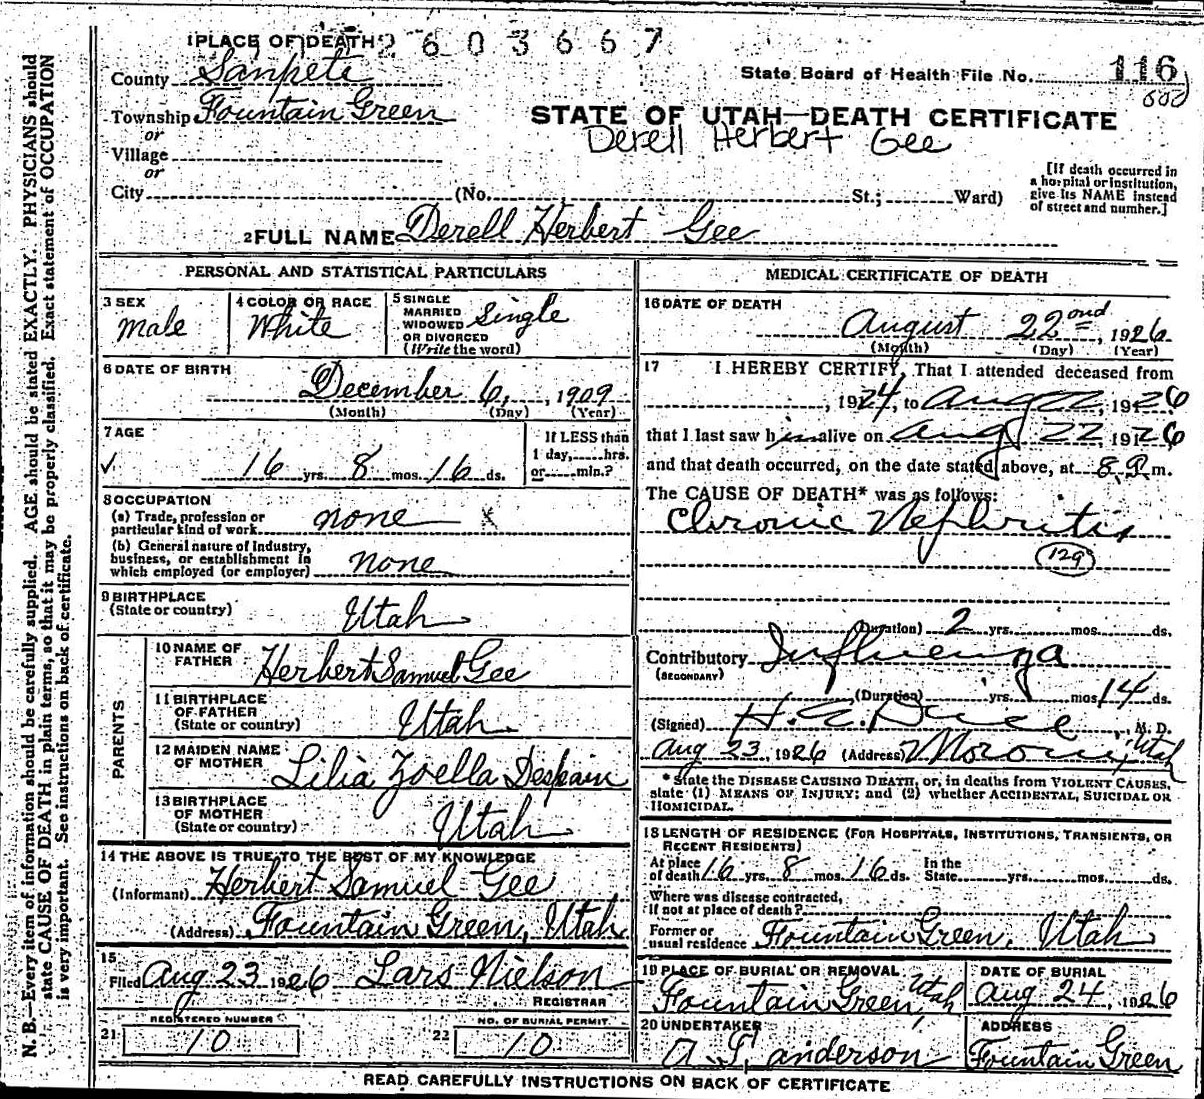 1 PLACE OF DEATH 2603667
County Sanpete
State Board of Health File No. 116
Township Fountain Green
STATE OF UTAH—DEATH CERTIFICATE
or
Derell Herbert Gee
Village
or
City (No. St.; Ward)
[If death occurred in a hospital or institution, give its NAME instead of street and number.]
2 FULL NAME Derell Herbert Gee
PERSONAL AND STATISTICAL PARTICULARS
3 SEX Male
4 COLOR OR RACE White
5 SINGLE MARRIED WIDOWED OR DIVORCED (Write the word) Single
6 DATE OF BIRTH
December 6, 1909
(Month) (Day) (Year)
7 AGE
16 yrs. 8 mos. 16 ds.
If LESS than 1 day, hrs. or min.?
8 OCCUPATION
(a) Trade, profession or particular kind of work none x
(b) General nature of Industry, business, or establishment in which employed (or employer) none
9 BIRTHPLACE
(State or country) Utah
PARENTS
10 NAME OF FATHER Herbert Samuel Gee
11 BIRTHPLACE OF FATHER (State or country) Utah
12 MAIDEN NAME OF MOTHER Lilia Zoella Despain
13 BIRTHPLACE OF MOTHER (State or country) Utah
14 THE ABOVE IS TRUE TO THE BEST OF MY KNOWLEDGE
(Informant) Herbert Samuel Gee
(Address) Fountain Green, Utah
15
Filed Aug 23 1926 Lars Nielson
REGISTRAR
21 REGISTERED NUMBER 10
22 NO. OF BURIAL PERMIT 10
MEDICAL CERTIFICATE OF DEATH
16 DATE OF DEATH
August 22nd, 1926
(Month) (Day) (Year)
17 I HEREBY CERTIFY, That I attended deceased from
, 1924, to Aug 22, 1926
that I last saw him alive on Aug 22, 1926
and that death occurred, on the date stated above, at 8 P. m.
The CAUSE OF DEATH* was as follows:
Chronic Nephritis
129
(Duration) 2 yrs. mos. ds.
Contributory Influenza
(SECONDARY)
(Duration) yrs. mos. 14 ds.
(Signed) M. D.
Aug 23, 1926 (Address) Moroni, Utah
* State the DISEASE CAUSING DEATH, or, in deaths from VIOLENT CAUSES, state (1) MEANS OF INJURY; and (2) whether ACCIDENTAL, SUICIDAL OR HOMICIDAL.
18 LENGTH OF RESIDENCE (FOR HOSPITALS, INSTITUTIONS, TRANSIENTS, OR RECENT RESIDENTS)
At place of death 16 yrs. 8 mos. 16 ds. In the State yrs. mos. ds.
Where was disease contracted, if not at place of death?
Former or usual residence Fountain Green, Utah
19 PLACE OF BURIAL OR REMOVAL Fountain Green, Utah
DATE OF BURIAL Aug 24, 1926
20 UNDERTAKER
ADDRESS Fountain Green
READ CAREFULLY INSTRUCTIONS ON BACK OF CERTIFICATE
N. B.—Every item of information should be carefully supplied. AGE should be stated EXACTLY. PHYSICIANS should
state CAUSE OF DEATH in plain terms, so that it may be properly classified. Exact statement of OCCUPATION
is very important. See instructions on back of certificate.